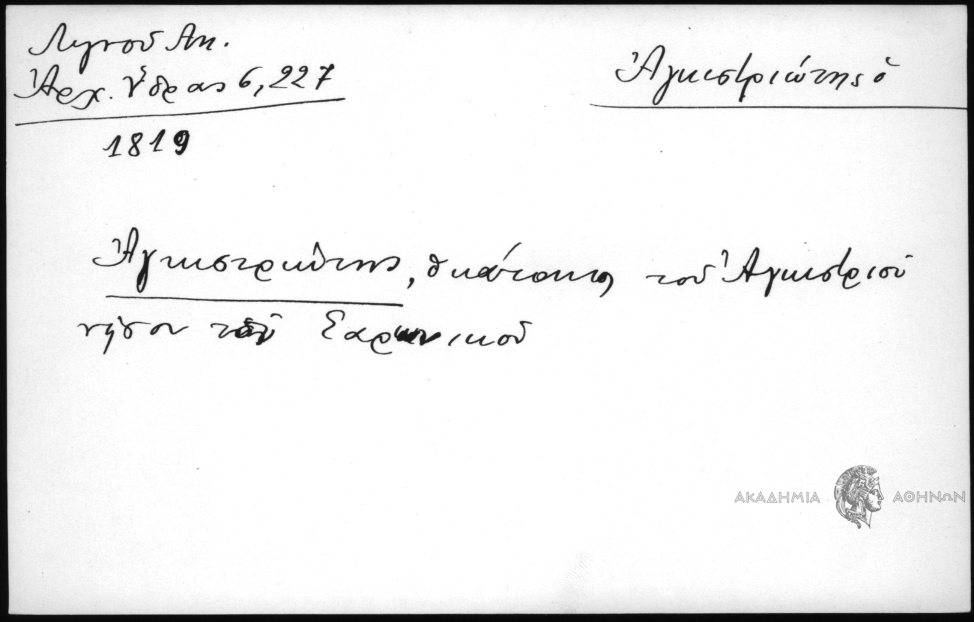 Λιγνοῦ Αν.
Ἀρχ. Ὕδρας 6, 227
1819
Ἀγκιστριώτης ὁ
Ἀγκιστριώτης, ὁ κάτοικος τοῦ Ἀγκιστριοῦ
νήσου τοῦ Σαρωνικοῦ
ΑΚΑΔΗΜΙΑ ΑΘΗΝΩΝ